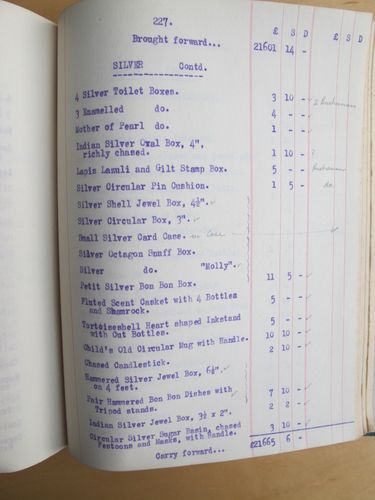 227.
£ S D £ S D
Brought forward... 21601 14 -
SILVER Contd.
4 Silver Toilet Boxes. 3 10 -
3 Enamelled do. 4 - -
Mother of Pearl do. 1 - -
Indian Silver Oval Box, 4",
richly chased. 1 10 - ?
Lapis Lasuli and Gilt Stamp Box. 5 - -
Silver Circular Pin Cushion. 1 5 - do.
Silver Shell Jewel Box, 4½".
Silver Circular Box, 3".
Small Silver Card Case. in Case
Silver Octagon Snuff Box.
Silver do. "Molly".
Petit Silver Bon Bon Box. 11 5 -
Fluted Scent Casket with 4 Bottles
and Shamrock. 5 - -
Tortoiseshell Heart shaped Inkstand
with Cut Bottles. 5 - -
Child's Old Circular Mug with Handle. 10 10 -
Chased Candlestick. 2 10 -
Hammered Silver Jewel Box, 6½".
on 4 feet.
Pair Hammered Bon Bon Dishes with
Tripod stands. 7 10 -
Indian Silver Jewel Box, 3½ x 2". 2 2 -
Circular Silver Sugar Basin, chased
Festoons and Masks, with Handle. 3 10 -
Carry forward... £21665 6 -